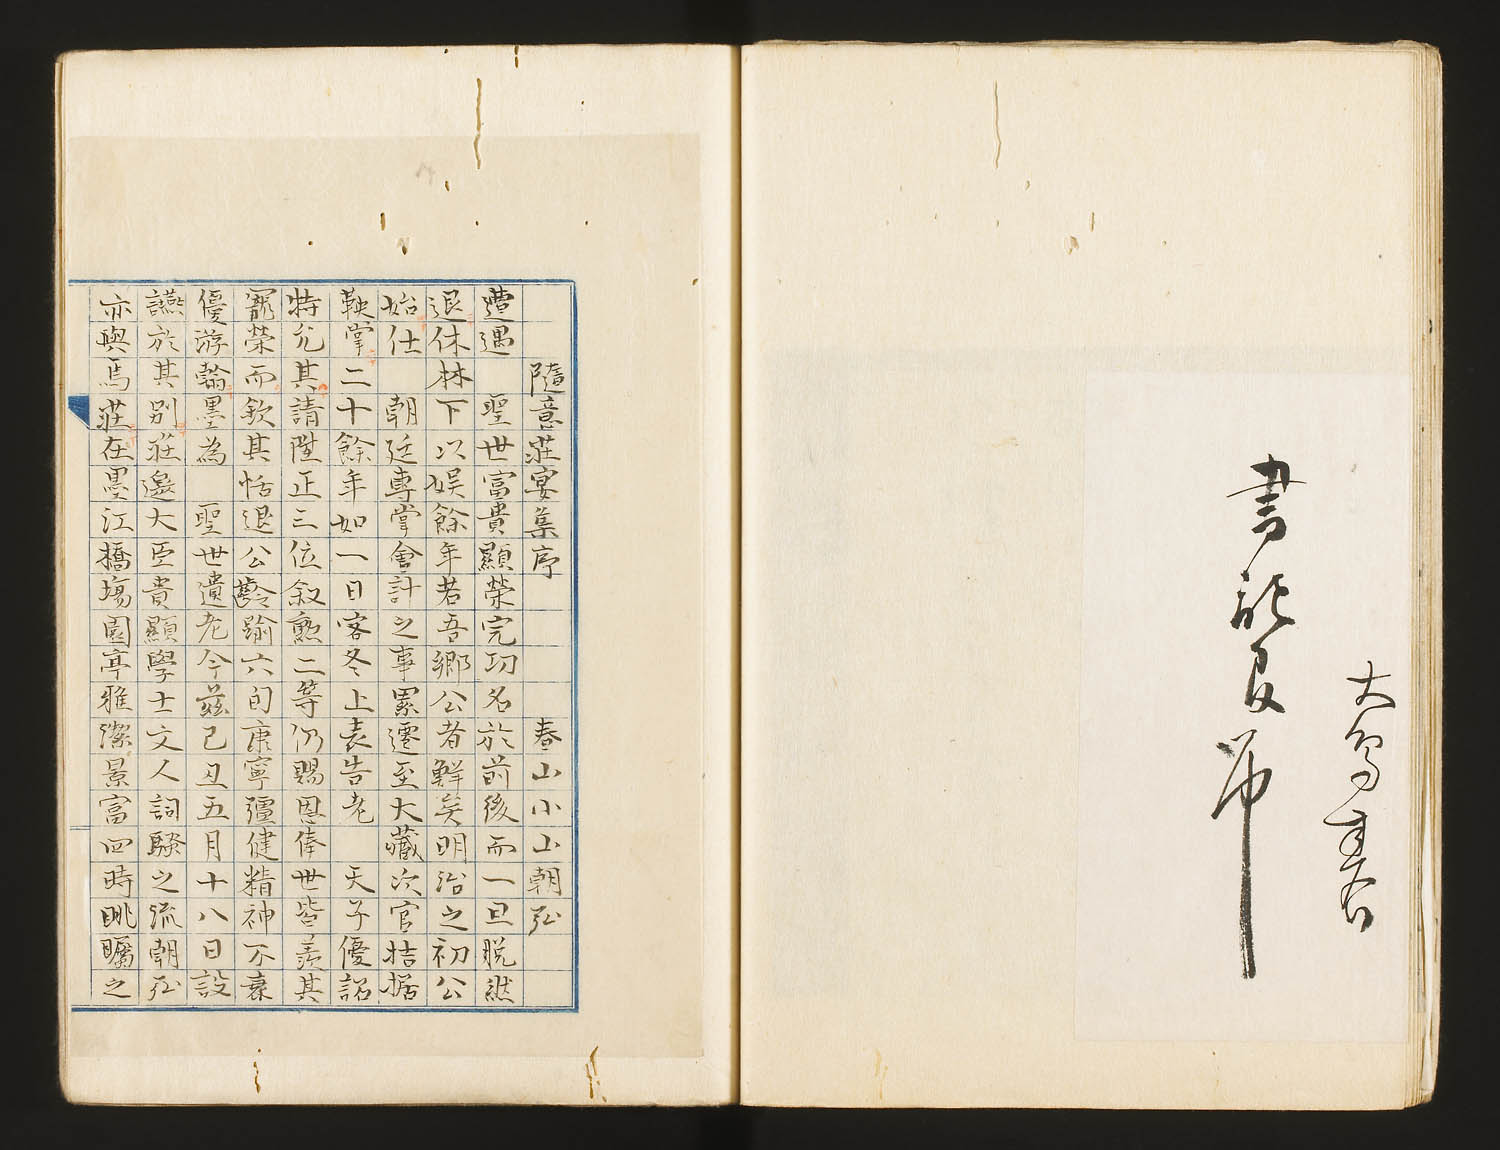 大鳥圭介
書記官
隨意莊宴集序
春山小山朝弘
遭遇　聖世富貴顯榮完功名於前後而一旦脱然
退休林下以娯餘年若吾鄉公者鮮矣明治之初公
始仕　朝廷專掌會計之事累遷至大藏次官拮据
鞅掌二十餘年如一日客冬上表告老　天子優詔
特允其請陞正三位叙勲二等仍賜恩俸世皆羨其
寵榮而欽其恬退公齡踰六旬康寧彊健精神不衰
優游翰墨為　聖世遺老今茲己丑五月十八日設
讌於其別莊邀大臣貴顯學士文人詞騷之流朝弘
亦與焉莊在墨江橋場園亭雅潔景富四時眺矚之